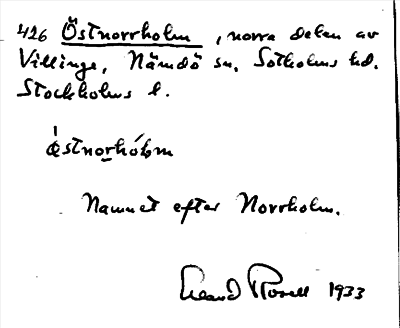 426 Östnorrholm, norra delen av
Villinge, Nämdö sn, Sotholms hd.
Stockholms l.
östnorhóḷm
Namnet efter Norrholm.
Erland Rosell 1933